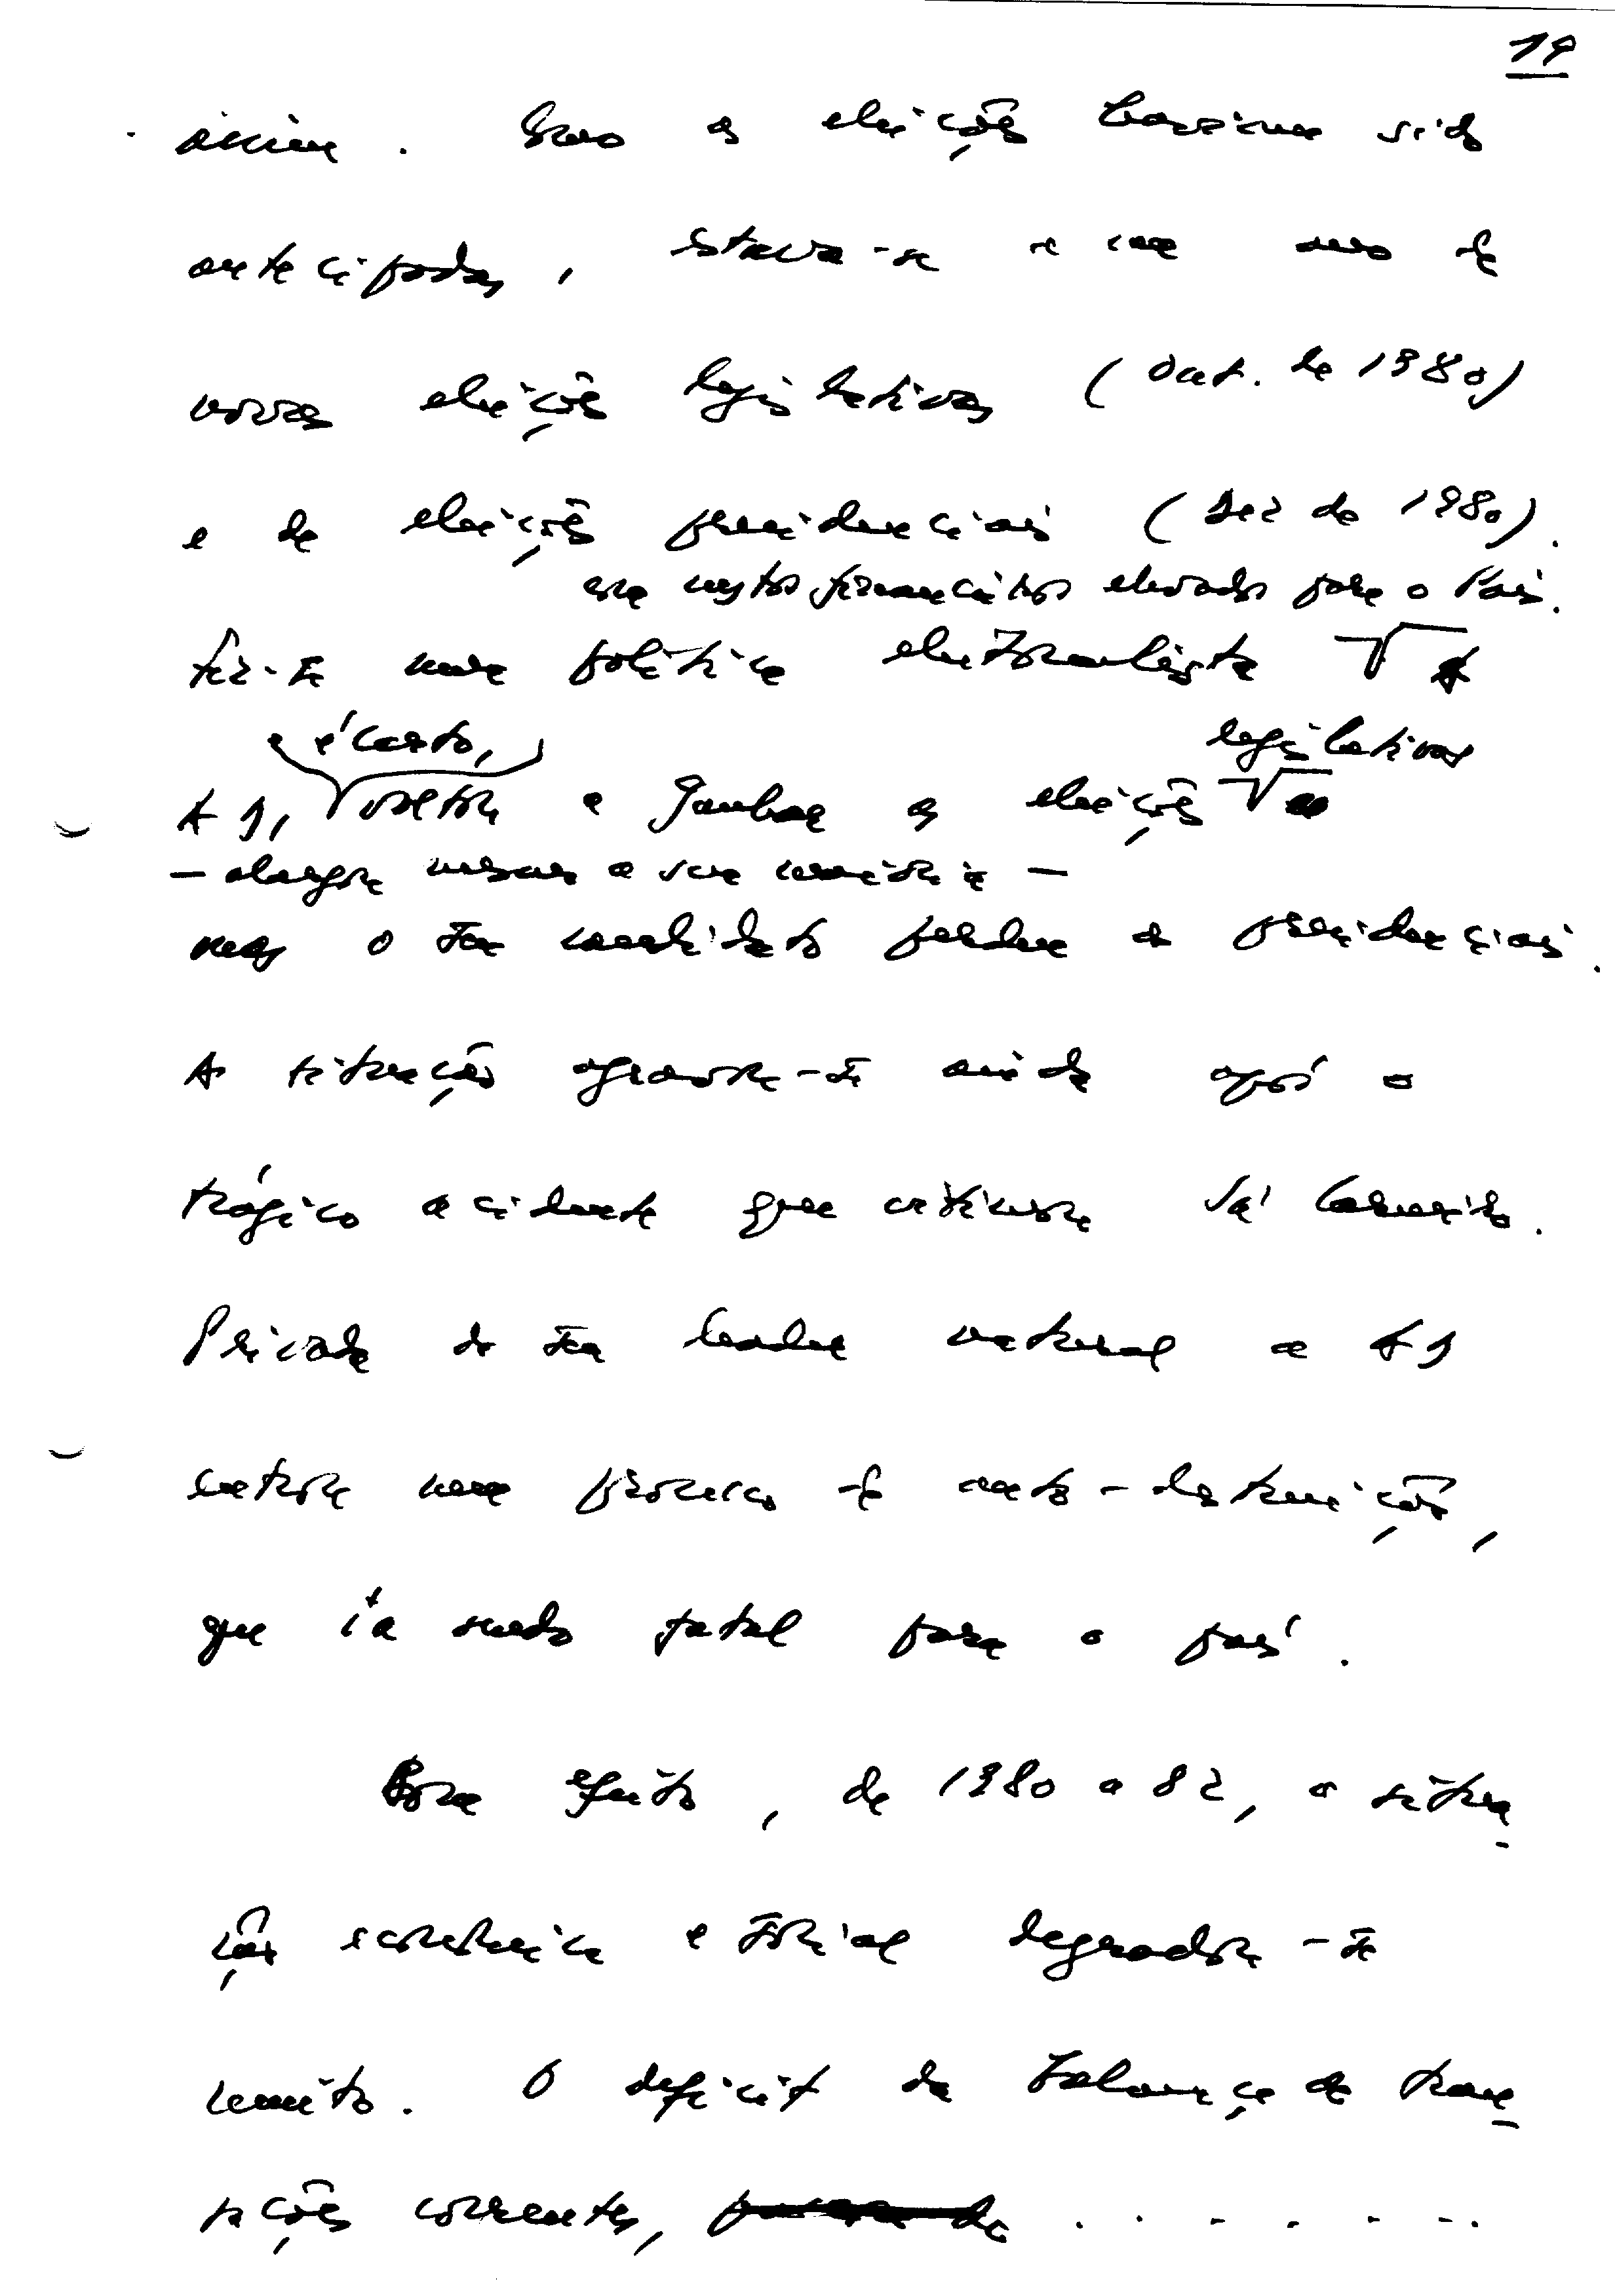 19
acima. Como as eleições haviam sido
antecipadas, estava-se a um ano de
novas eleições legislativas (Out. de 1980)
e de eleições presidenciais (Dez de 1980).
com custos financeiros elevados para o País.
Fez-se uma política eleitoralista
e é certo,
legislativas
A AD, voltou a ganhar as eleições
– alargou mesmo a sua maioria –
mas o seu candidato perdeu as presidenciais.
A situação agravou-se ainda após o
trágico acidente que vitimou Sá Carneiro.
Privada do seu leader natural a AD
entrou num processo de auto-destruição,
que ia sendo fatal para o país.
Com efeito, de 1980 a 82, a situa-
ção económica e social degradou-se
muito. O deficit da balança de tran-
sações correntes, . . . . . . .